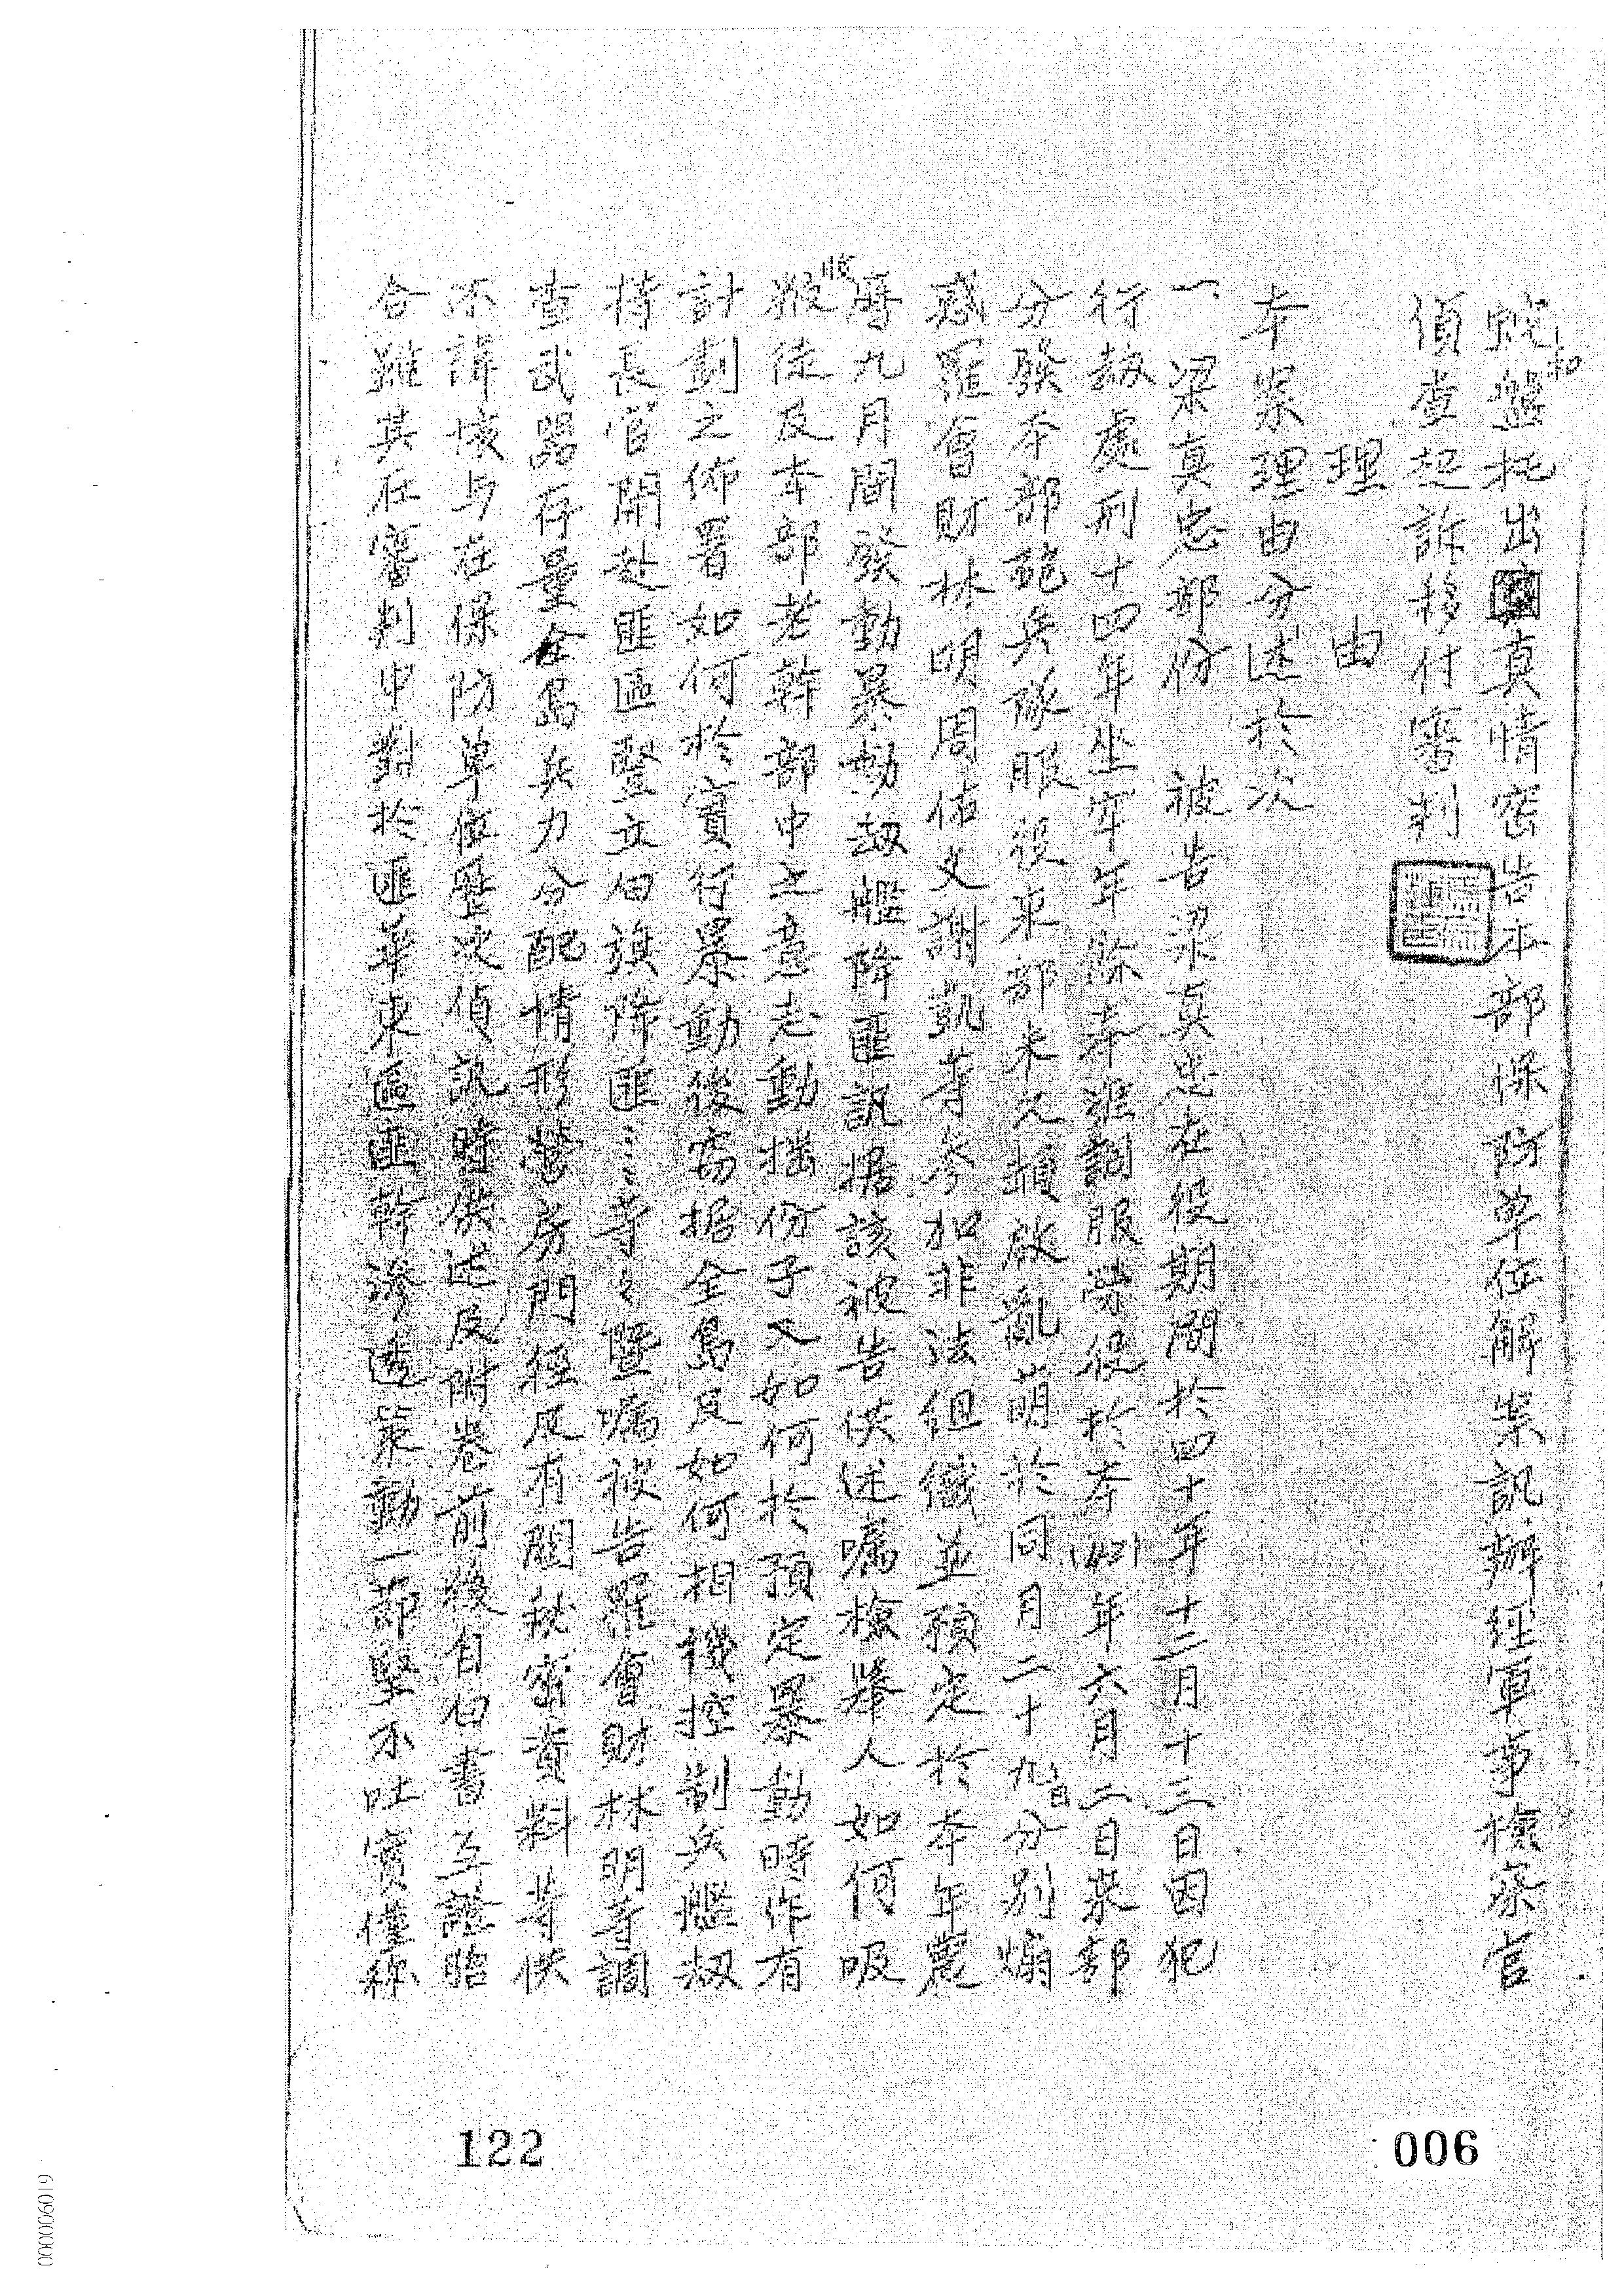 盤托出真情密告本部保防单位解案訊辦经軍事檢察官
偵查起訴移付審判
理由
本案理由分述於次
一 梁真忠部份 被告梁真忠在役期間於四十年十二月十三日因犯
行劫處刑十四年坐牢年餘奉准調服勞役於本(四二)年六月二日來部
分發本部砲兵隊服役来部未久頓啟亂萌於同月二十九日分别煽
惑羅會財林明周佑义謝凱等参加非法組織並預定於本年農
曆九月間發動暴動劫艦降匪訊据該被告供述嘱檢舉人如何吸
收徒及本部老幹部中之意志動摇份子又如何於預定暴動時作有
計劃之佈署如何於實行暴動後奮据全島及如何相機控制兵艦劫
持長官開赴匪區豎立白旗降匪……等之暨嘱被告羅會財林明等調
查武器存量全島兵力分配情形營房門徑及有関秘密資料等供
不諱核与在保防单位歷次偵訊時供述及附卷前後自白書互證脗
合雖其在審判中對於匪華東區匪幹滲透策動一節堅不吐實僅称
122
006
000006019